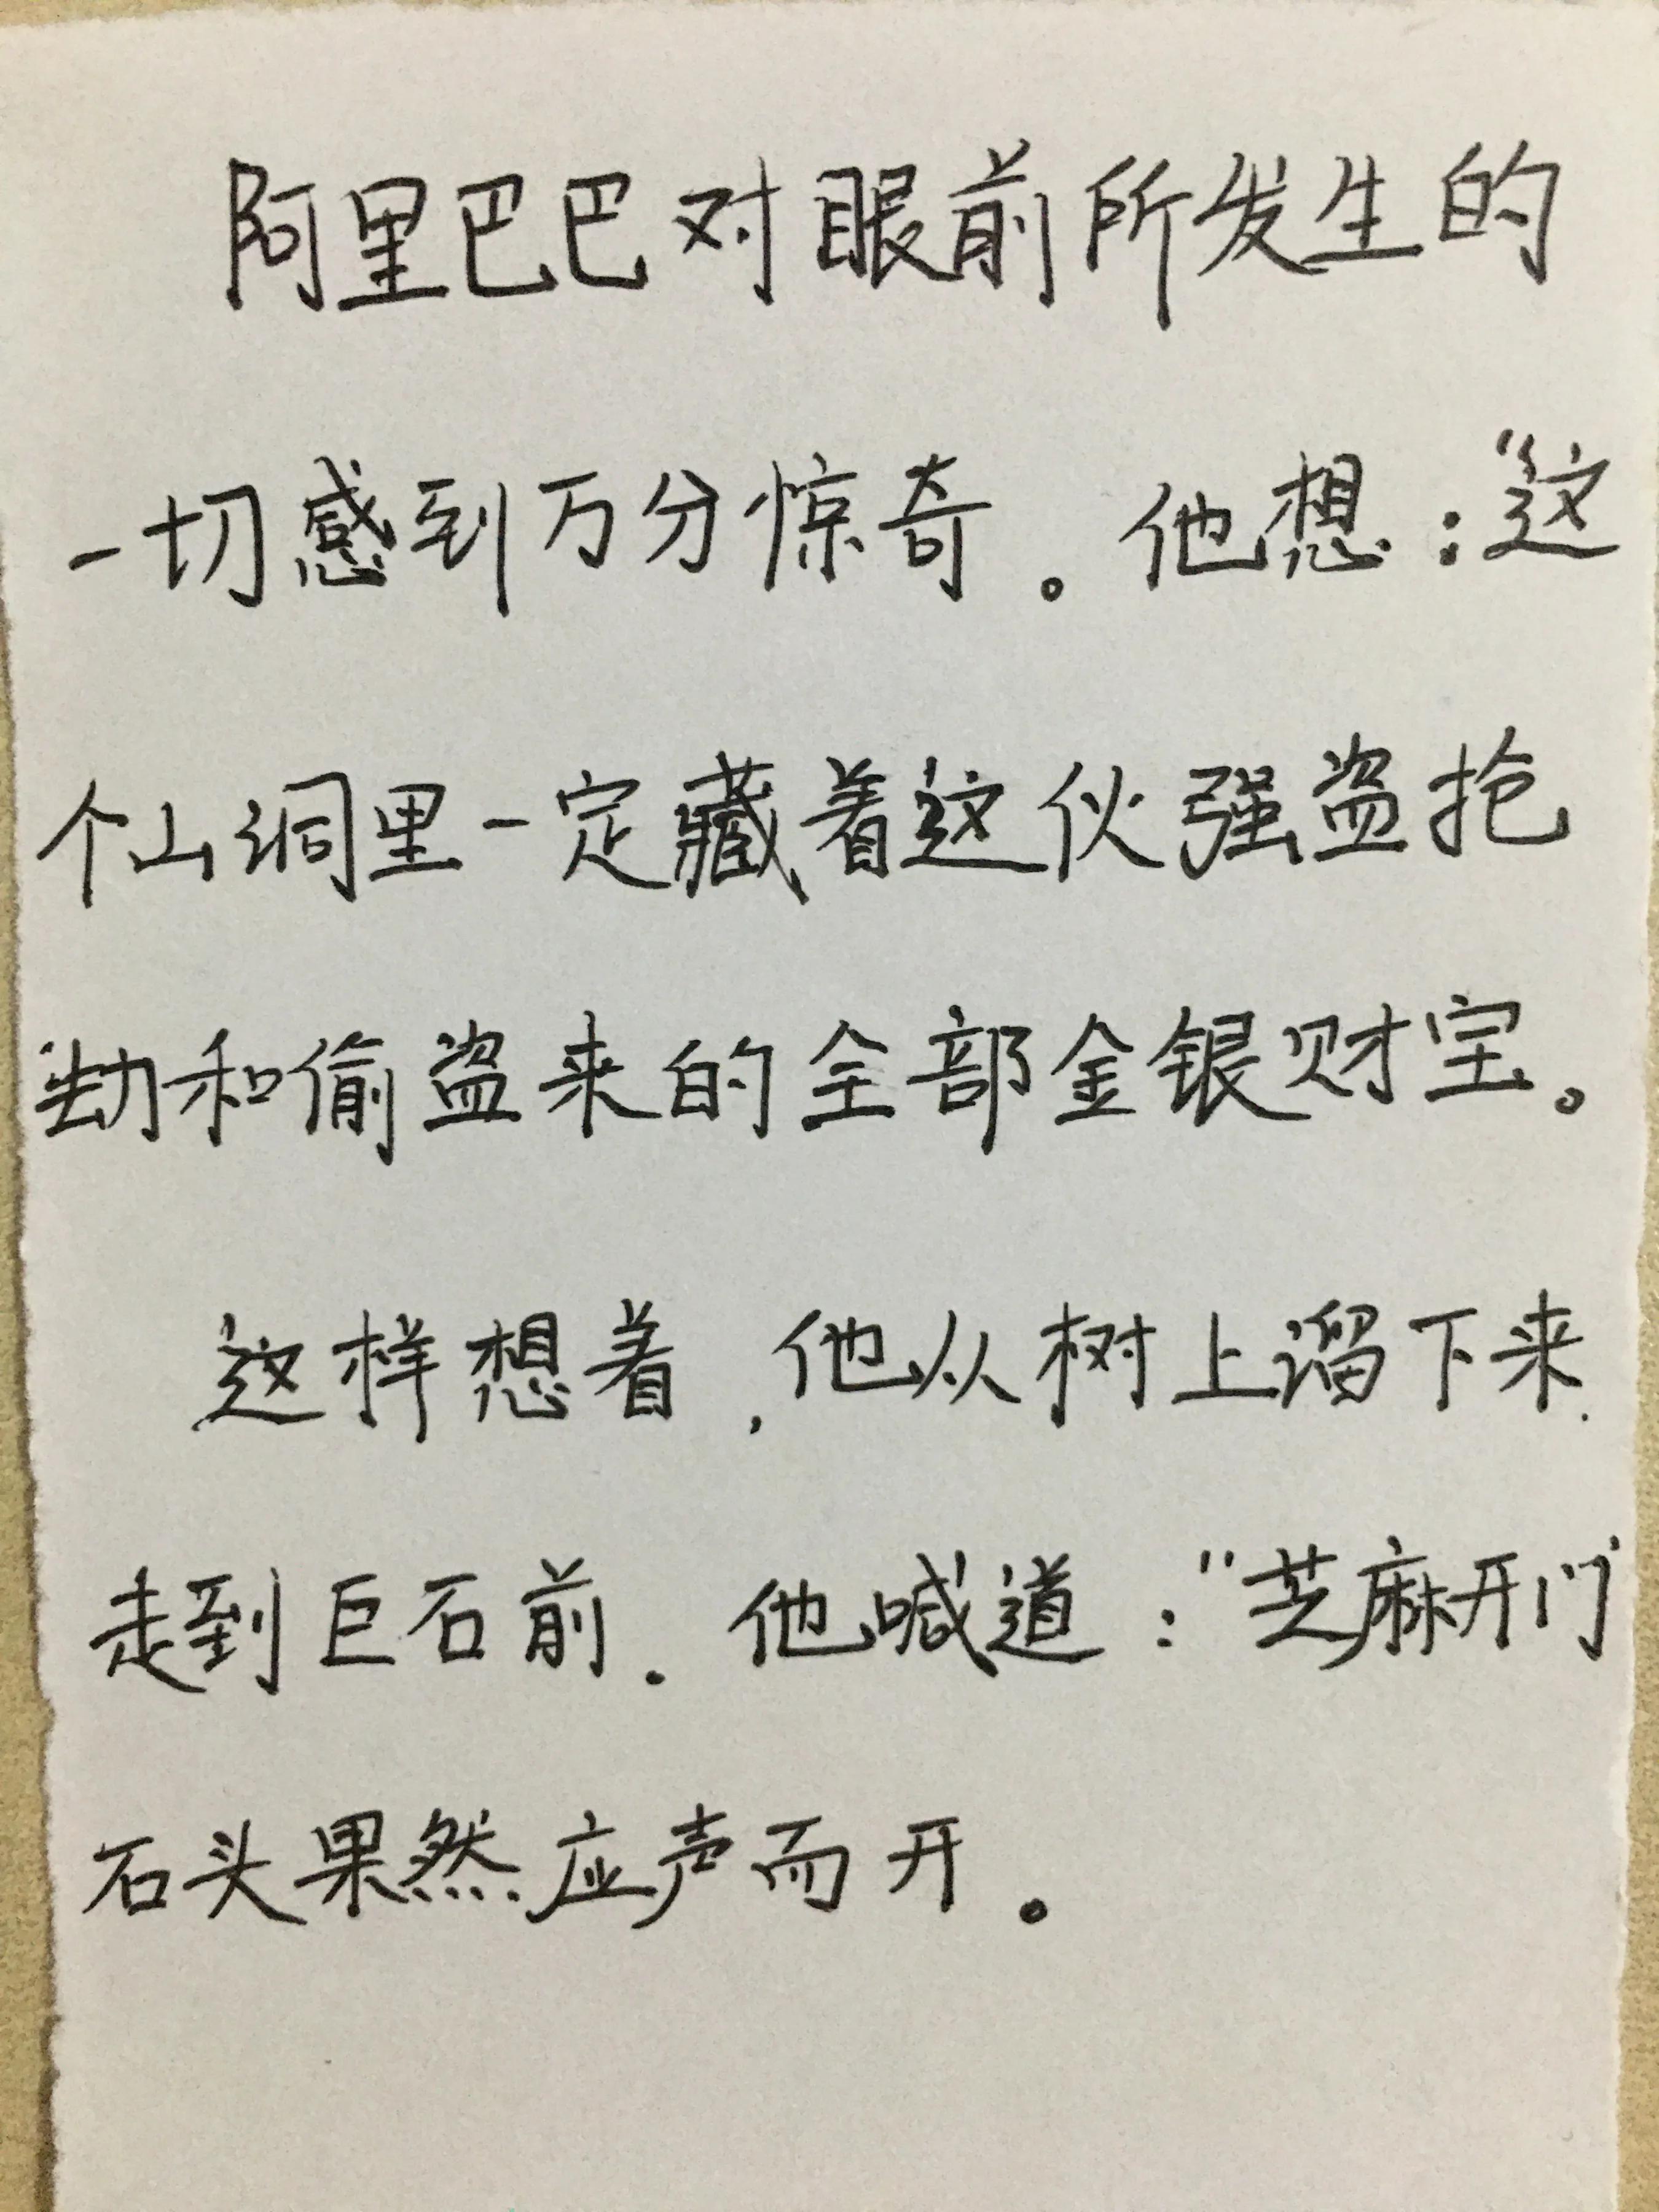 阿里巴巴对眼前所发生的
一切感到万分惊奇。他想：“这
个山洞里一定藏着这伙强盗抢
劫和偷盗来的全部金银财宝。
这样想着，他从树上溜下来，
走到巨石前. 他喊道：“芝麻开门”
石头果然应声而开。